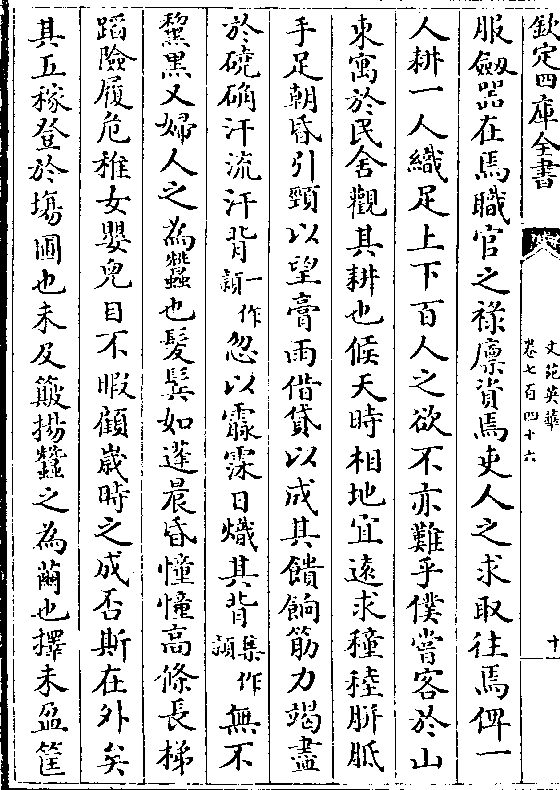 欽定四庫全書
文苑英華
卷七百四十六
十
服劔器在焉職官之祿廪資焉吏人之求取往焉俾一
人耕一人織足上下百人之欲不亦難乎僕嘗客於山
東寓於民舍觀其耕也候天時相地宜逺求穜稑胼胝
手足朝昏引頸以望膏雨借貸以成其饋餉筋力竭盡
於磽确汗流汗背一作頳忽以霢霂日熾其背集作頳無不
黧黑又婦人之為蠶也髮鬓如蓬晨昏憧憧高條長梯
蹈險履危稚女嬰兒目不暇顧歲時之成否斯在外矣
其五稼登於塲圃也未及簸揚蠶之為繭也擇未盈筐